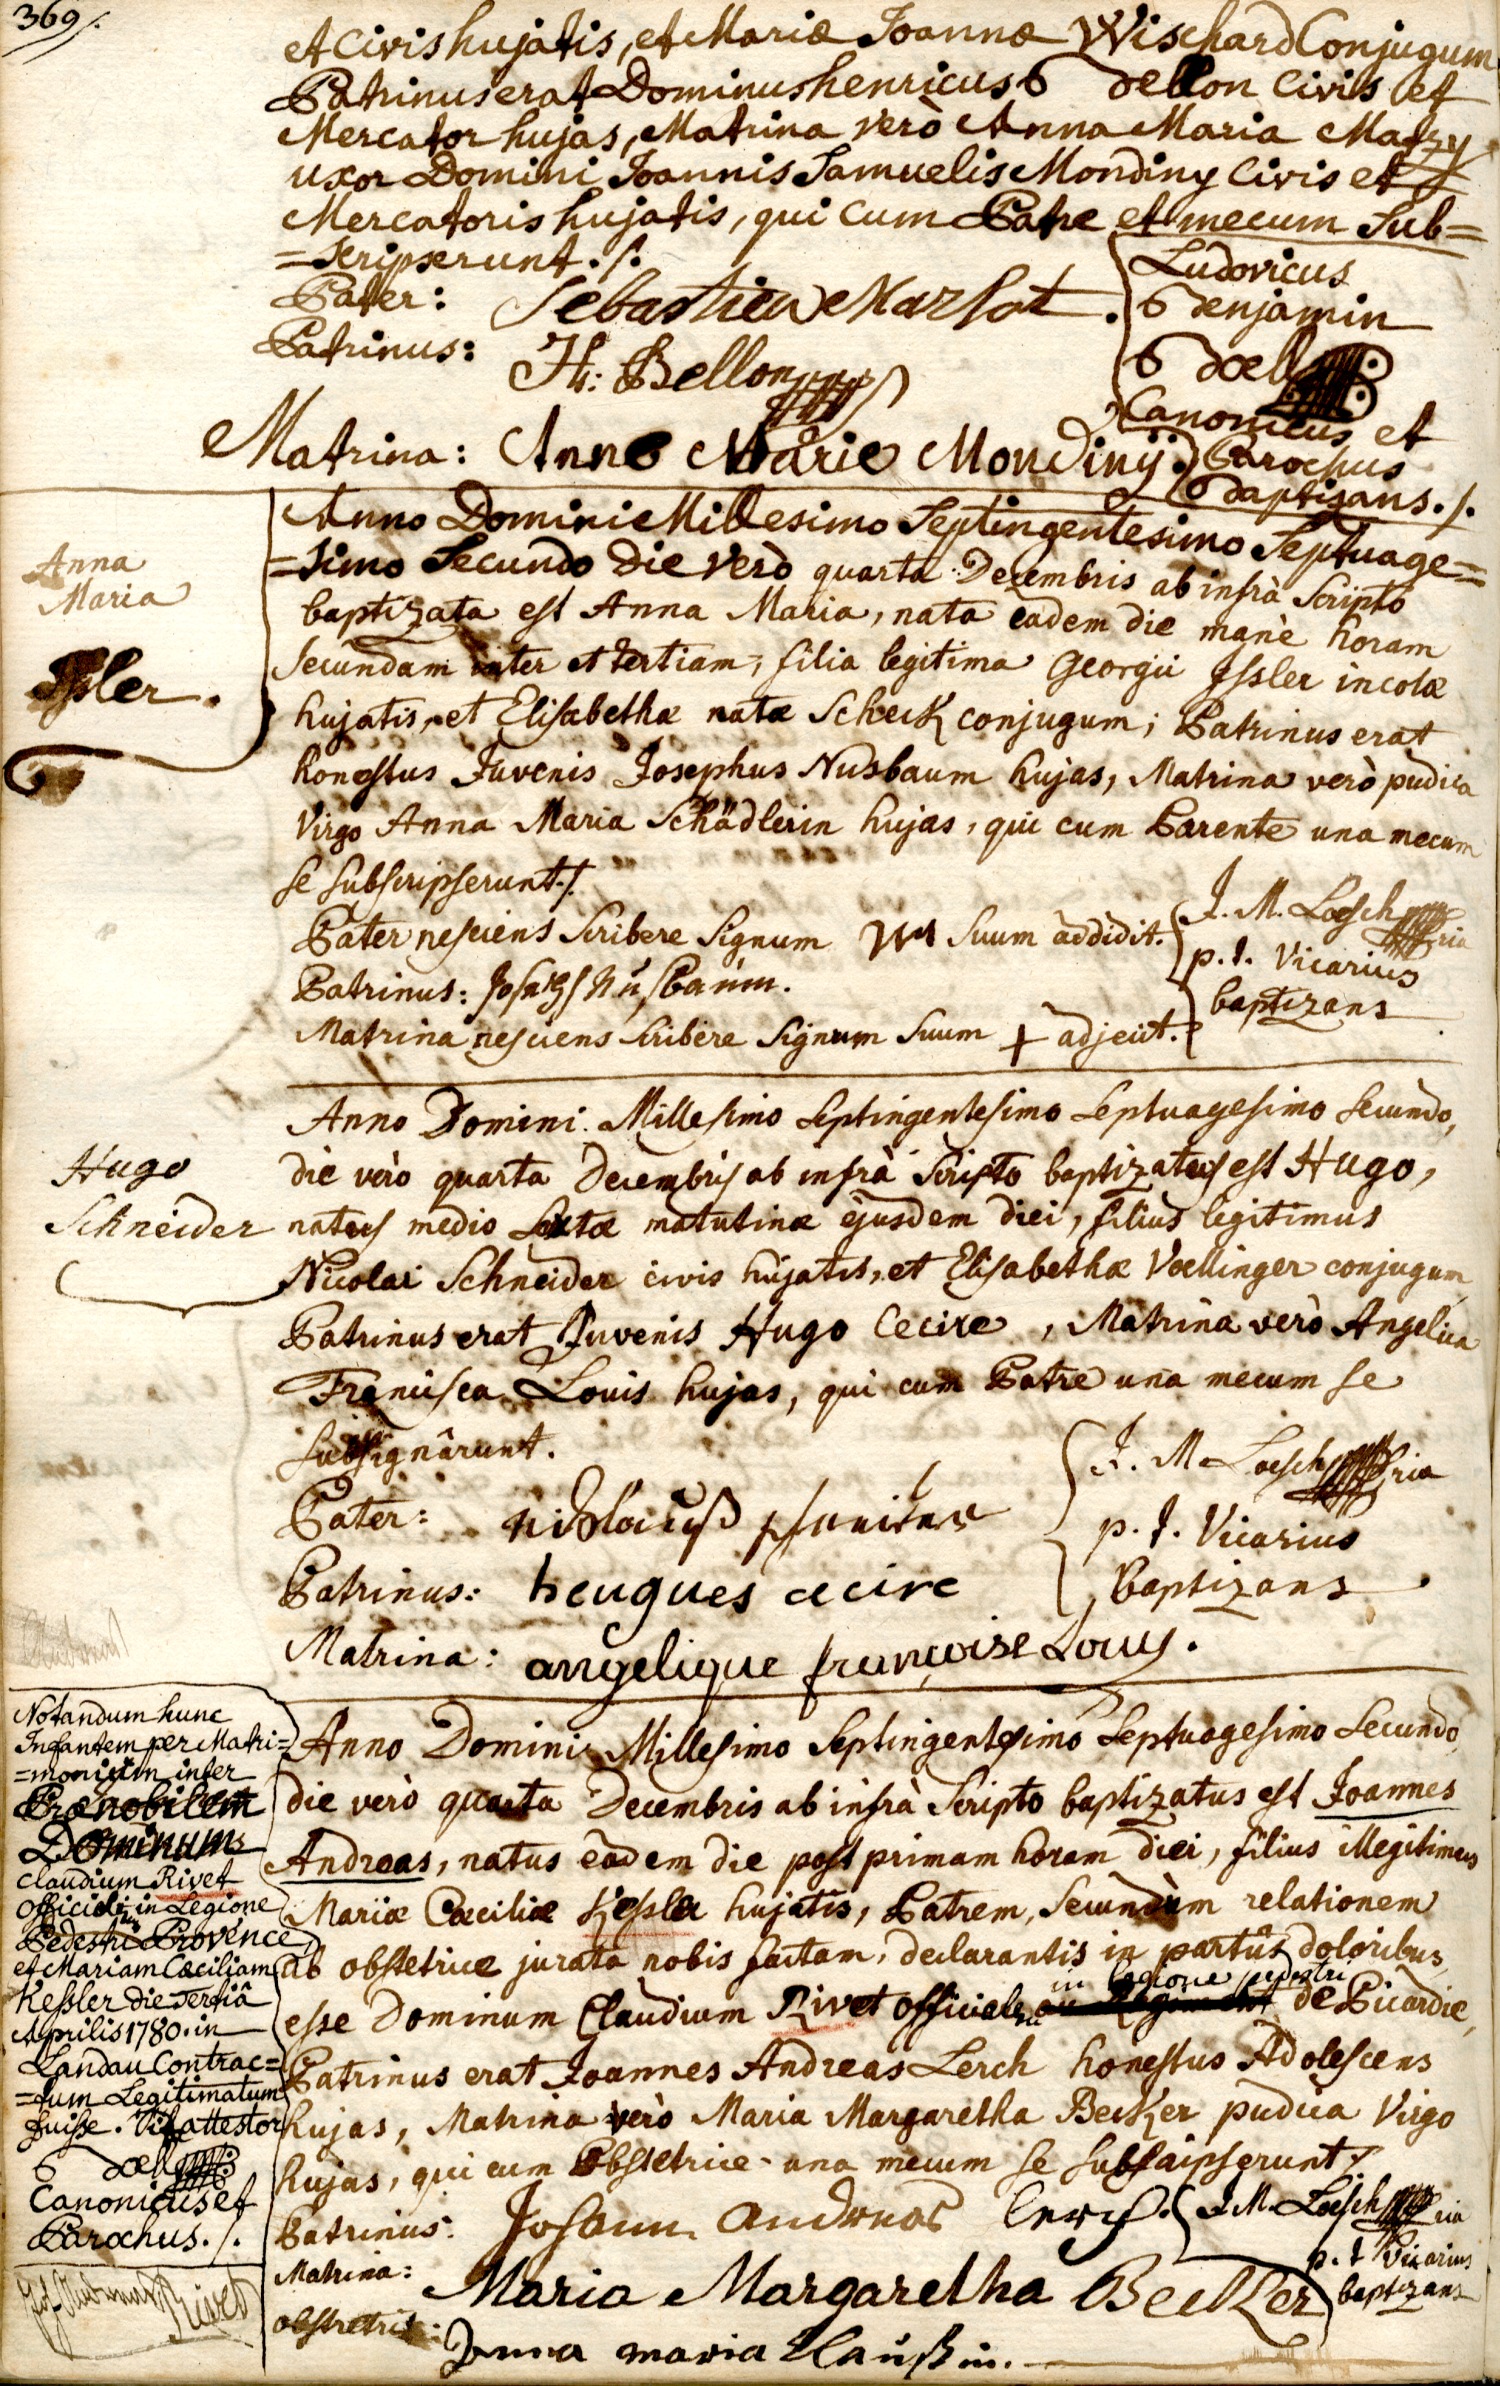 369/.
et Civis hujatis, et Mariæ Joannæ Wischard Conjugum
Patrinus erat Dominus henricus Bellon Civis et
Mercator hujas, Matrina verò Anna Maria Matzy
uxor Domini Joannis Samuelis Mondiny Civis et
Mercatoris hujatis, qui cum Patre et mecum Sub=
=Scripserunt ./.
Pater: Sebastien Marlot.
Patrinus: H: Bellon
Matrina: Anne Marie Mondiny.
Ludovicus
Benjamin
Boell
Canonicus et
Parochus
Baptizans ./.
Anna
Maria
Issler.
Anno Domini Millesimo Septingentesimo Septuage=
=simo Secundo die verò quarta Decembris ab infrà Scripto
baptizata est Anna Maria, nata eadem die manè horam
Secundam inter et tertiam, filia legitima Georgii Issler incolæ
hujatis, et Elisabethæ natæ Scheck conjugum; Patrinus erat
honestus Juvenis Josephus Nusbaum hujas, Matrina verò pudica
Virgo Anna Maria Schädlerin hujas, qui cum Parente una mecum
se subscripserunt ./.
Pater nesciens Scribere Signum Suum addidit.
Patrinus: Joseph Nusbaum.
Matrina nesciens Scribere Signum Suum + adjecit.
J. M. Loesch
p. t. Vicarius
baptizans
Hugo
Schneider
Anno Domini Millesimo Septingentesimo Septuagesimo Secundo,
die verò quarta Decembris ab infrà Scripto baptizatus est Hugo,
natus medio Sextæ matutinæ ejusdem diei, filius legitimus
Nicolai Schneider civis hujatis, et Elisabethæ Voellinger conjugum
Patrinus erat Juvenis Hugo Cecire, Matrina verò Angelica
Francisca Louis hujas, qui cum Patre una mecum se
subsignârunt.
Pater: nicklauß schneider
Patrinus: heugues cecire
Matrina: angelique françoise Louis.
J. M. Loesch
p. t. Vicarius
Baptizans
Notandum hunc
Infantem per Matri=
=monium inter
Prænobilem
Dominum
Claudium Rivet
officialem in Legione
Pedestri Provence,
et Mariam Cæciliam
Kessler die tertiâ
Aprilis 1780. in
Landau Contrac=
=tum Legitimatum
fuisse. Ita attestor
Boell
Canonicus et
Parochus ./.
Anno Domini Millesimo Septingentesimo Septuagesimo Secundo,
die verò quarta Decembris ab infrà Scripto baptizatus est Joannes
Andreas, natus eâdem die post primam horam diei, filius illegitimus
Mariæ Cæciliæ Kessler hujatis, Patrem, Secundùm relationem
ab obstetrice jurata nobis factam, declarantis in partûs doloribus
in legione pedestri
esse Dominum Claudium Rivet officialem de Picardie,
Patrinus erat Joannes Andreas Lerch honestus Adolescens
hujas, Matrina verò Maria Margaretha Becker pudica Virgo
hujas, qui cum Obstetrice una mecum se subscripserunt ./.
Patrinus: Johann Andreas Lerch.
Matrina: Maria Margaretha Becker
obstretrix: Anna maria Claußin.
J. M. Loesch
p. t. Vicarius
baptizans